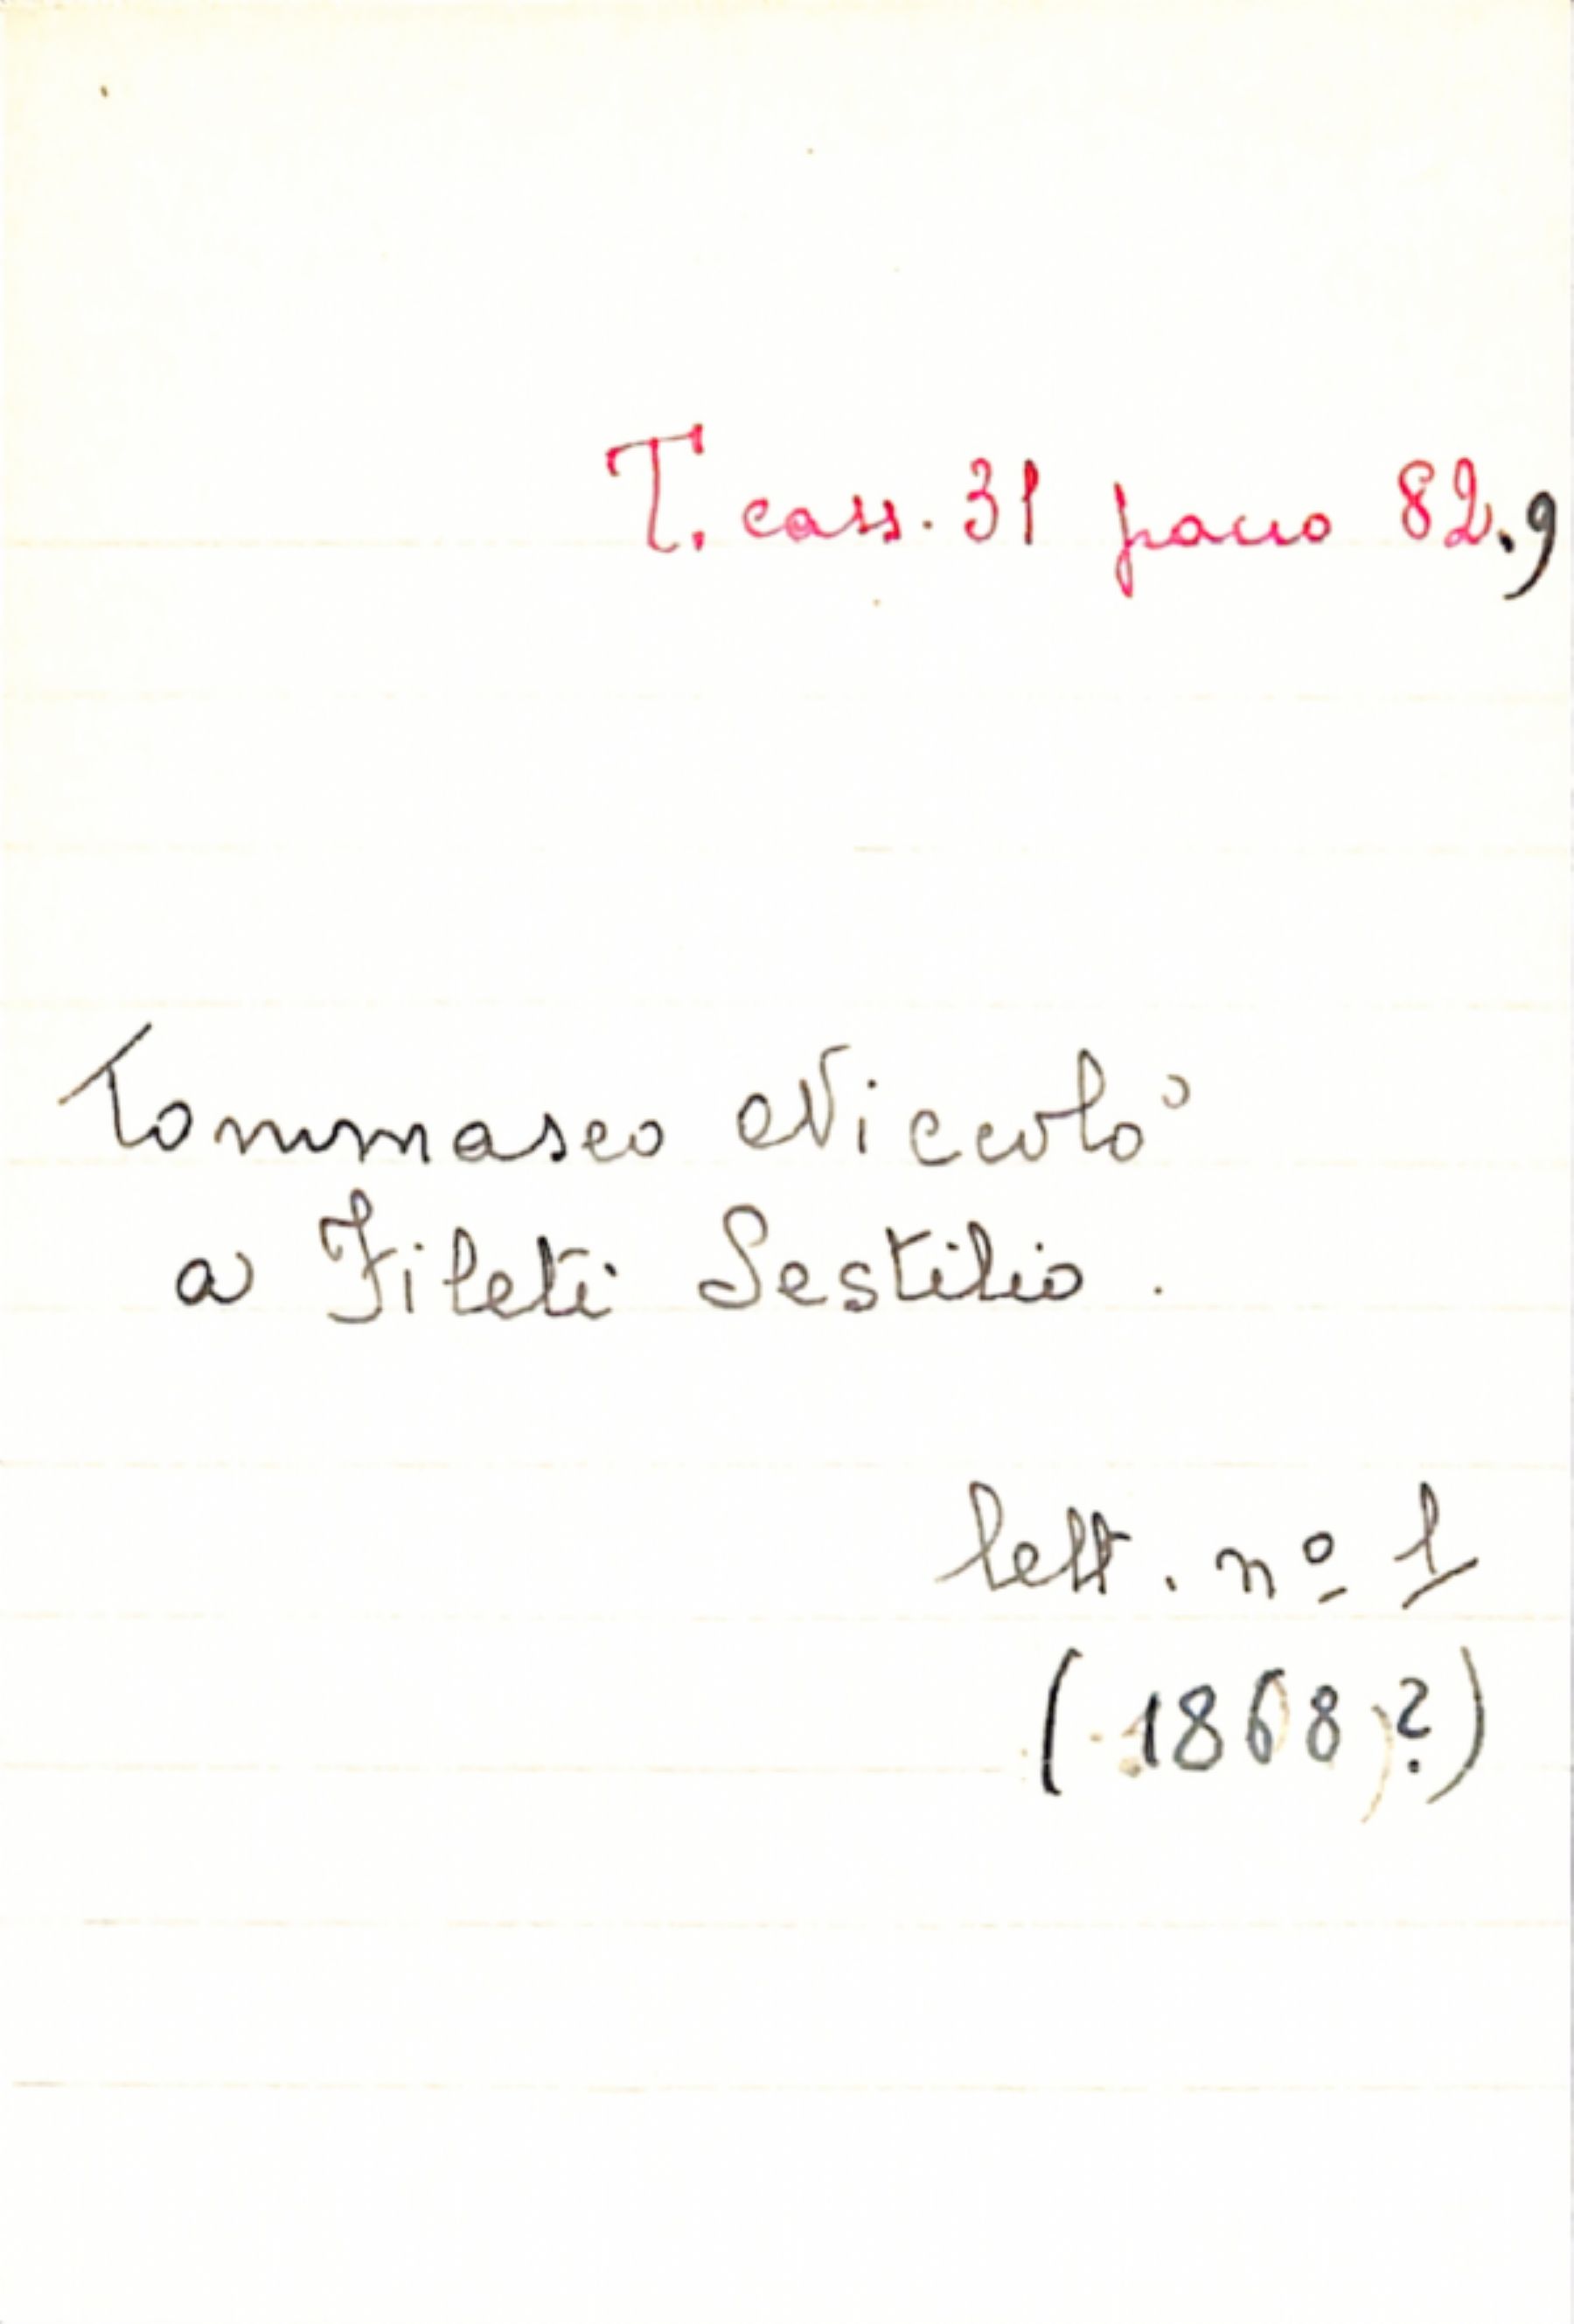 T. cass. 31 pacco 82.9
Tommaseo Niccolò
a Fileti Sestilio.
lett. nº 1
(1868?)